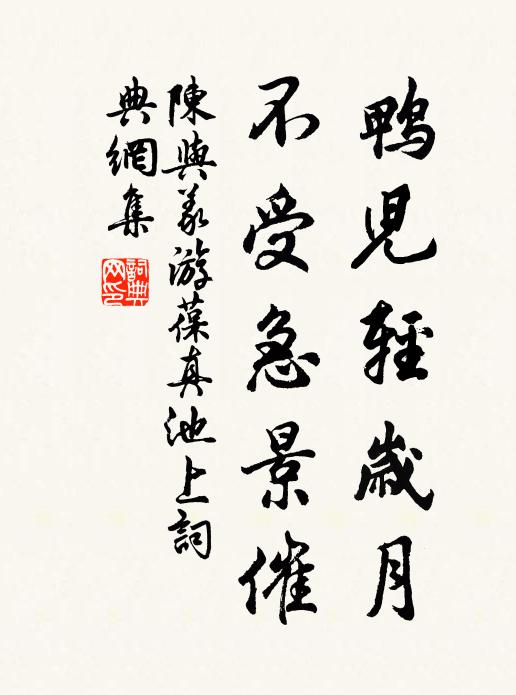 鴨兒輕歲月
不受急景催
陳與義游葆真池上詞
典網集
詞典網印